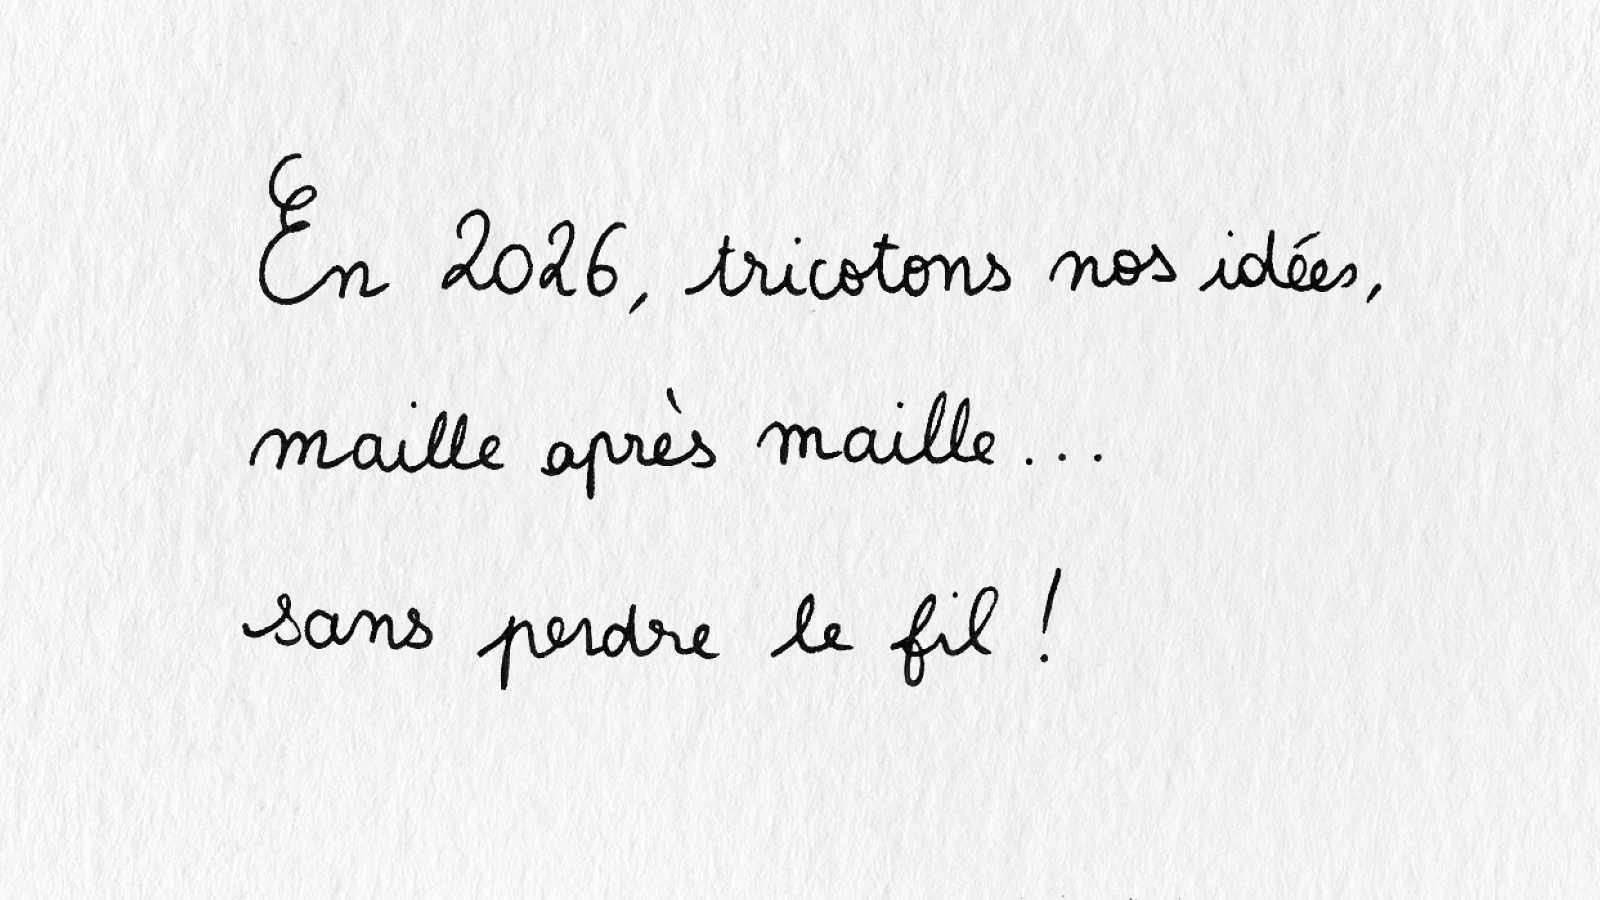 En 2026, tricotons nos idées,
maille après maille...
sans perdre le fil !